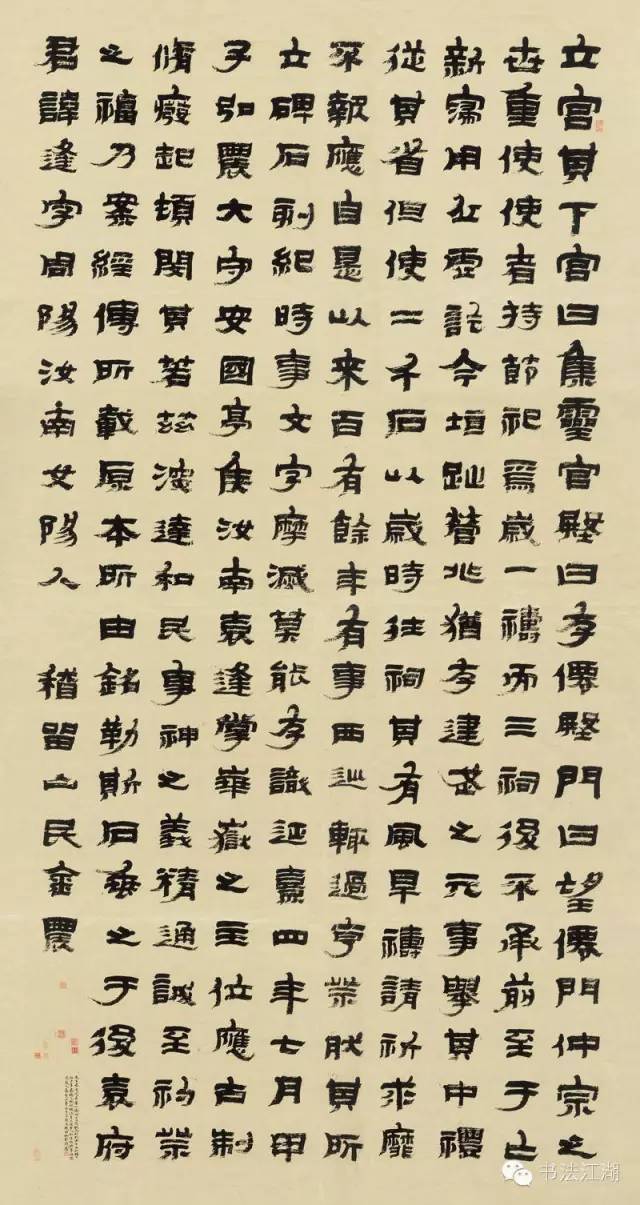 立宮其下宮曰集靈宮殿曰存僊殿門曰望僊門仲宗之
世重使使者持節祀焉歲一禱而三祠後不承前至于亡
新寖用丘虛訖今垣趾營兆猶存建武之元事舉其中禮
從其省但使二千石以歲時往祠其有風旱禱請祈求靡
不報應自是以來百有餘年有事西巡輒過亨祭肰其所
立碑石刻紀時事文字摩滅莫能存識延熹四年七月甲
子弘農大守安國亭矦汝南袁逢掌華嶽之主位應古制
脩廢起頓閔其若茲深達和民事神之義精通誠至礿祭
之福乃案經傳所載原本所由銘勒斯石垂之于後袁府
君諱逢字周陽汝南女陽人
稽留山民金農
书法江湖